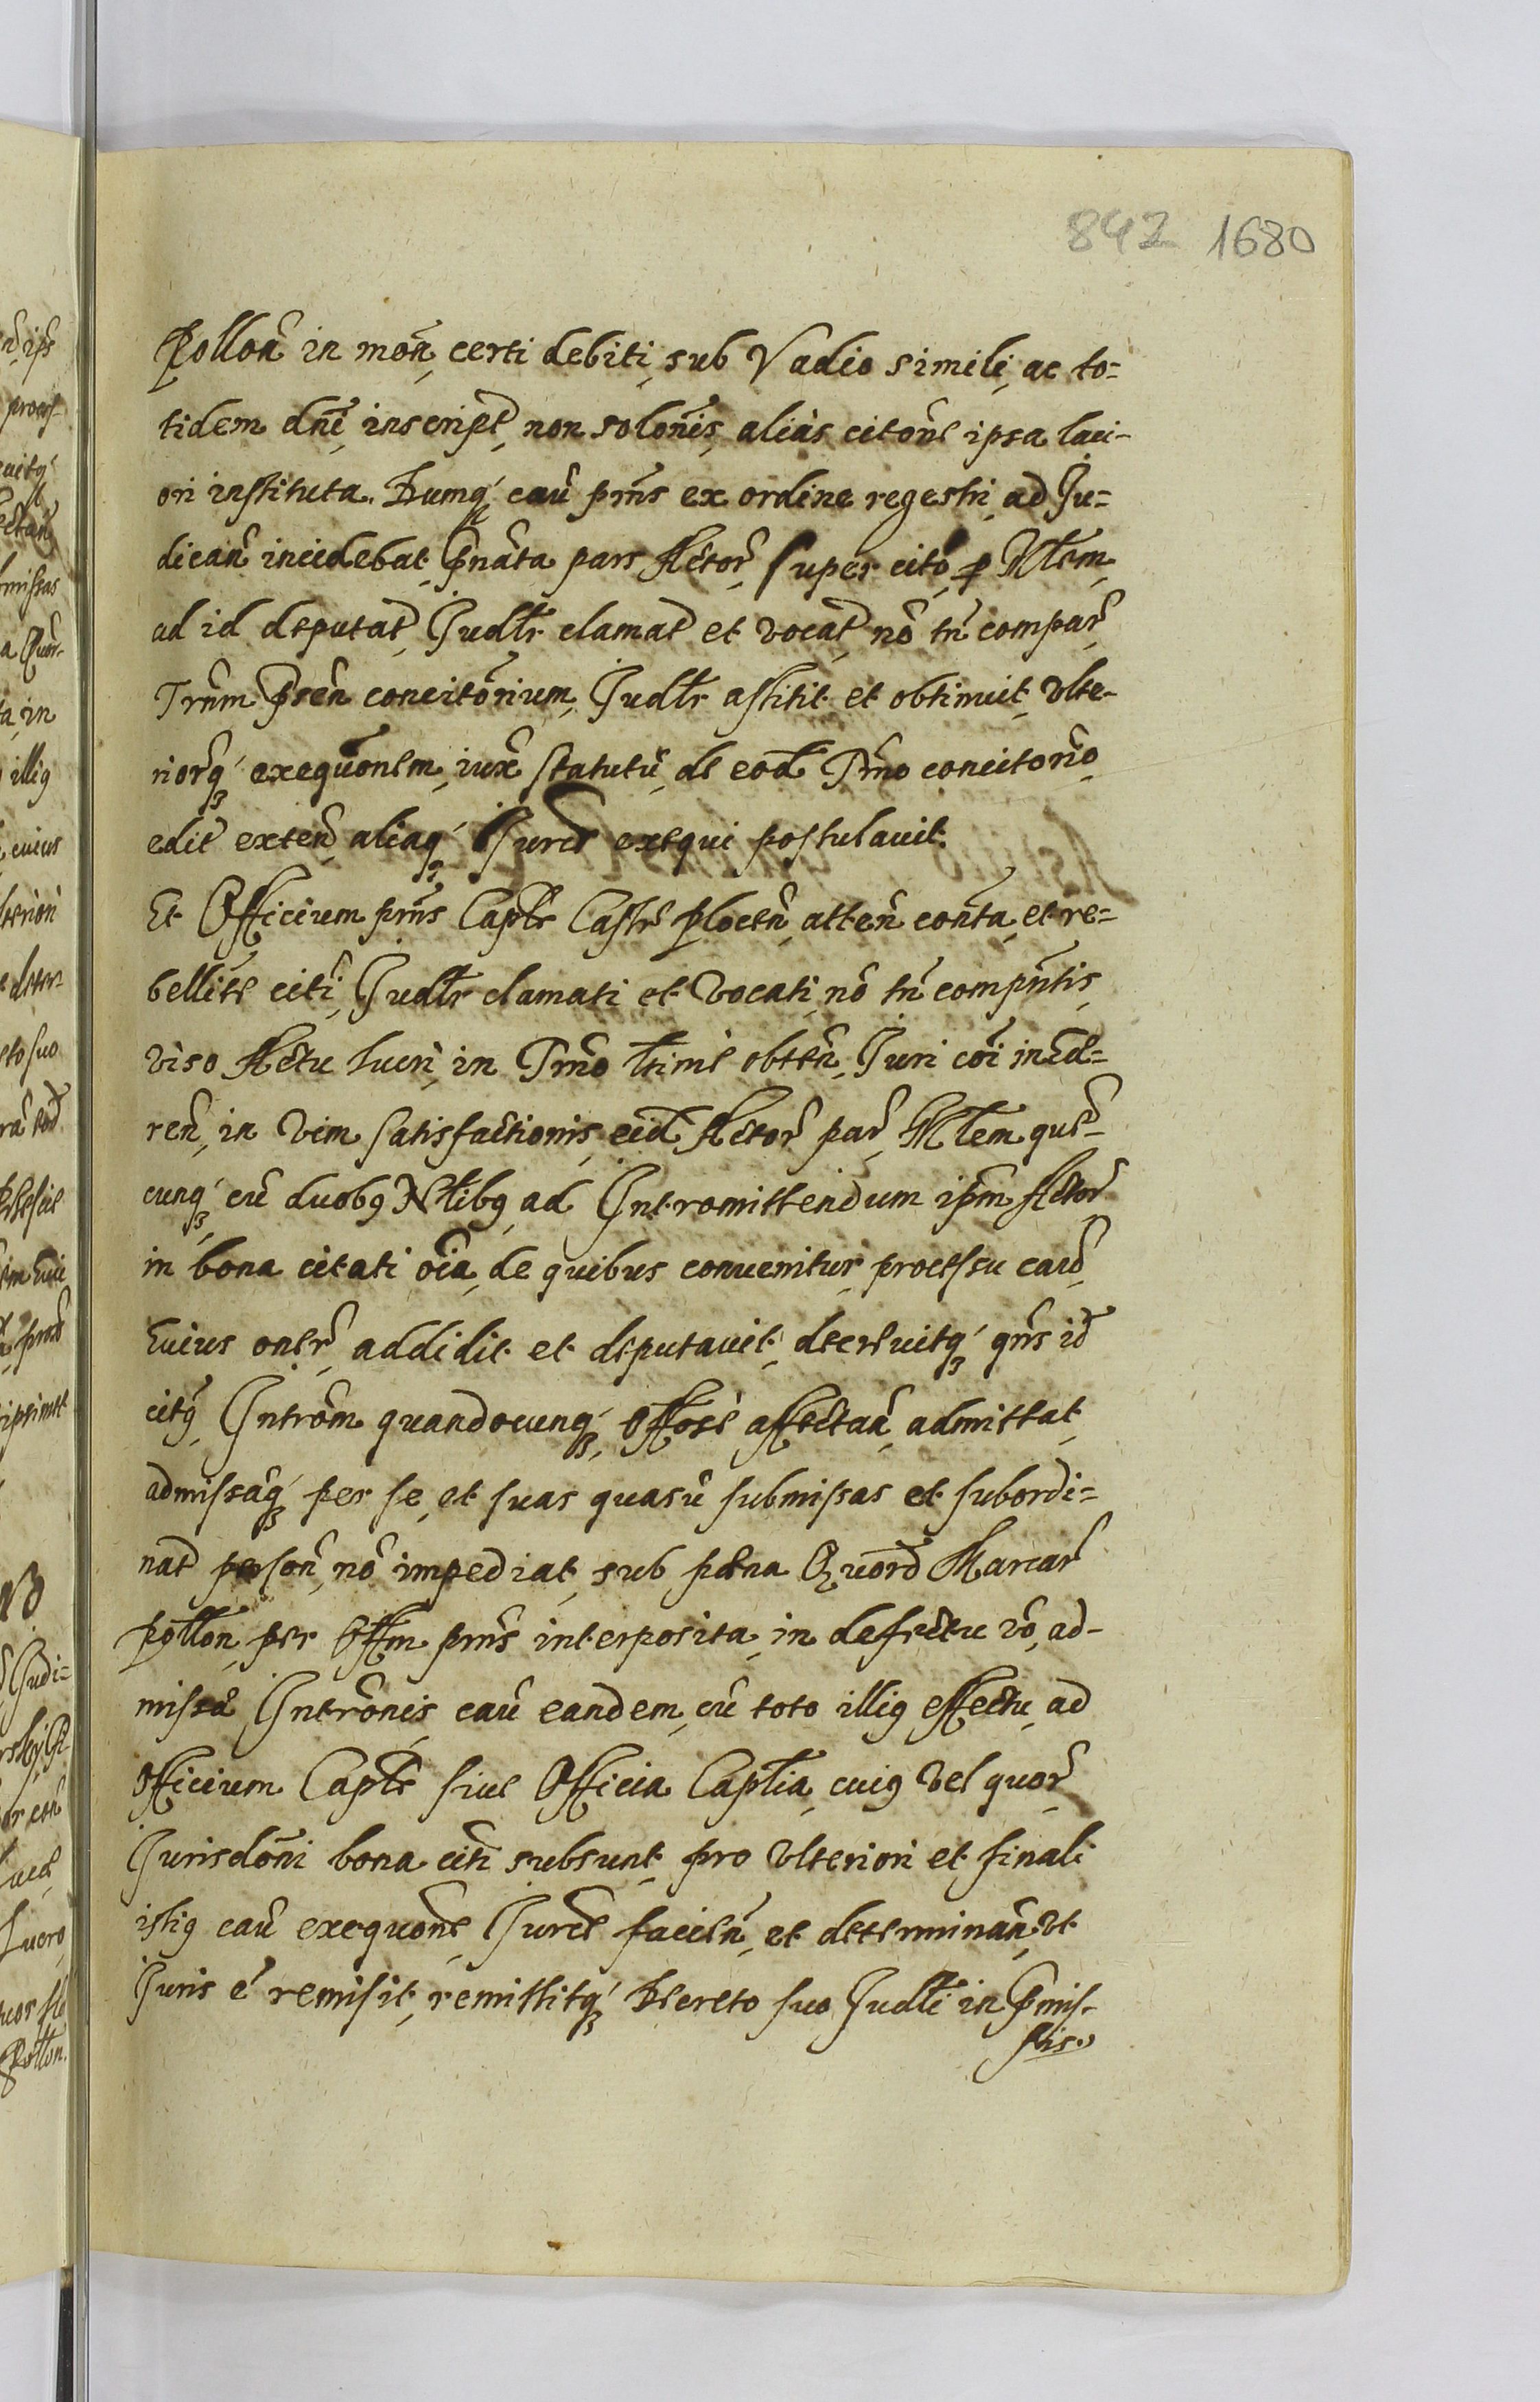 842 1680
Pollon̄ in mon̄, certi debiti, sub Vadio simili, ac to=
tidem dn̄i, inscript̄, non solōnis, aliàs citōne ipsa laci-
ori instituta. Dumq́ꝫ cau̅ pn̄s ex ordine regestri, ad Ju=
dican̄ incidebat, p̄nāta pars Actor̄, super citō, ꝑ Mlem,
ad id deputat̄, Judlr clamat̄ et vocat̄, nō tn̄ compar̄,
Trn̄m p̄sen̄ concitōrium, Judlr astitit et obtinuit, vlte-
riorq́ꝫ exequōnem, iux̄ statutū, de eod̄ Trn̄o concitorīo
edit̄ exten̄, aliaq́ꝫ Jurd̄e exequi postulavit.
Et Officium pn̄s Capl̄e Castr̄e plocen̄, atten̄ conta, et re=
bellit̄e citi, Judlr clamati et vocati, nō tn̄ compn̄tis,
viso Actu lucri, in Trn̄o ltime obten̄, Juri cōi inhe=
ren̄, in vim satisfactionis, eid̄ Actor̄ par̄, Mlem quē-
cunq́ꝫ cū duobꝰ Nlibꝰ, ad Intromittendum ipm̄ Actor̄
in bona citati ōia, de quibus convenitur, processu caus̄,
huius oner̄ addidit et deputavit, decrevitq́ꝫ qn̄s id̄
citꝰ, Introm̄ quandocunq́ꝫ, Offōse affectan̄, admittat,
admissāq́ꝫ per se, et suas quasū submissas et subordi=
nat̄ person̄, nō impediat, sub pœna Quord̄ Marcar̄
pollon̄, per Offm̄ pn̄s interposita, in defectu vō, ad-
missæ Intrōnis, cau̅ eandem, cū toto illiꝰ effectu, ad
Officium Capl̄e sive Officia Captlia, cuiꝰ vel quor̄
Jurisdōni bona citi subsunt, pro vlteriori et finali
istiꝰ cau̅ exequōne, Jurd̄e facien̄, et determinan̄, vt
Juris ē remisit, remittitq́ꝫ Decreto suo Judlī in p̄mis-
sis.